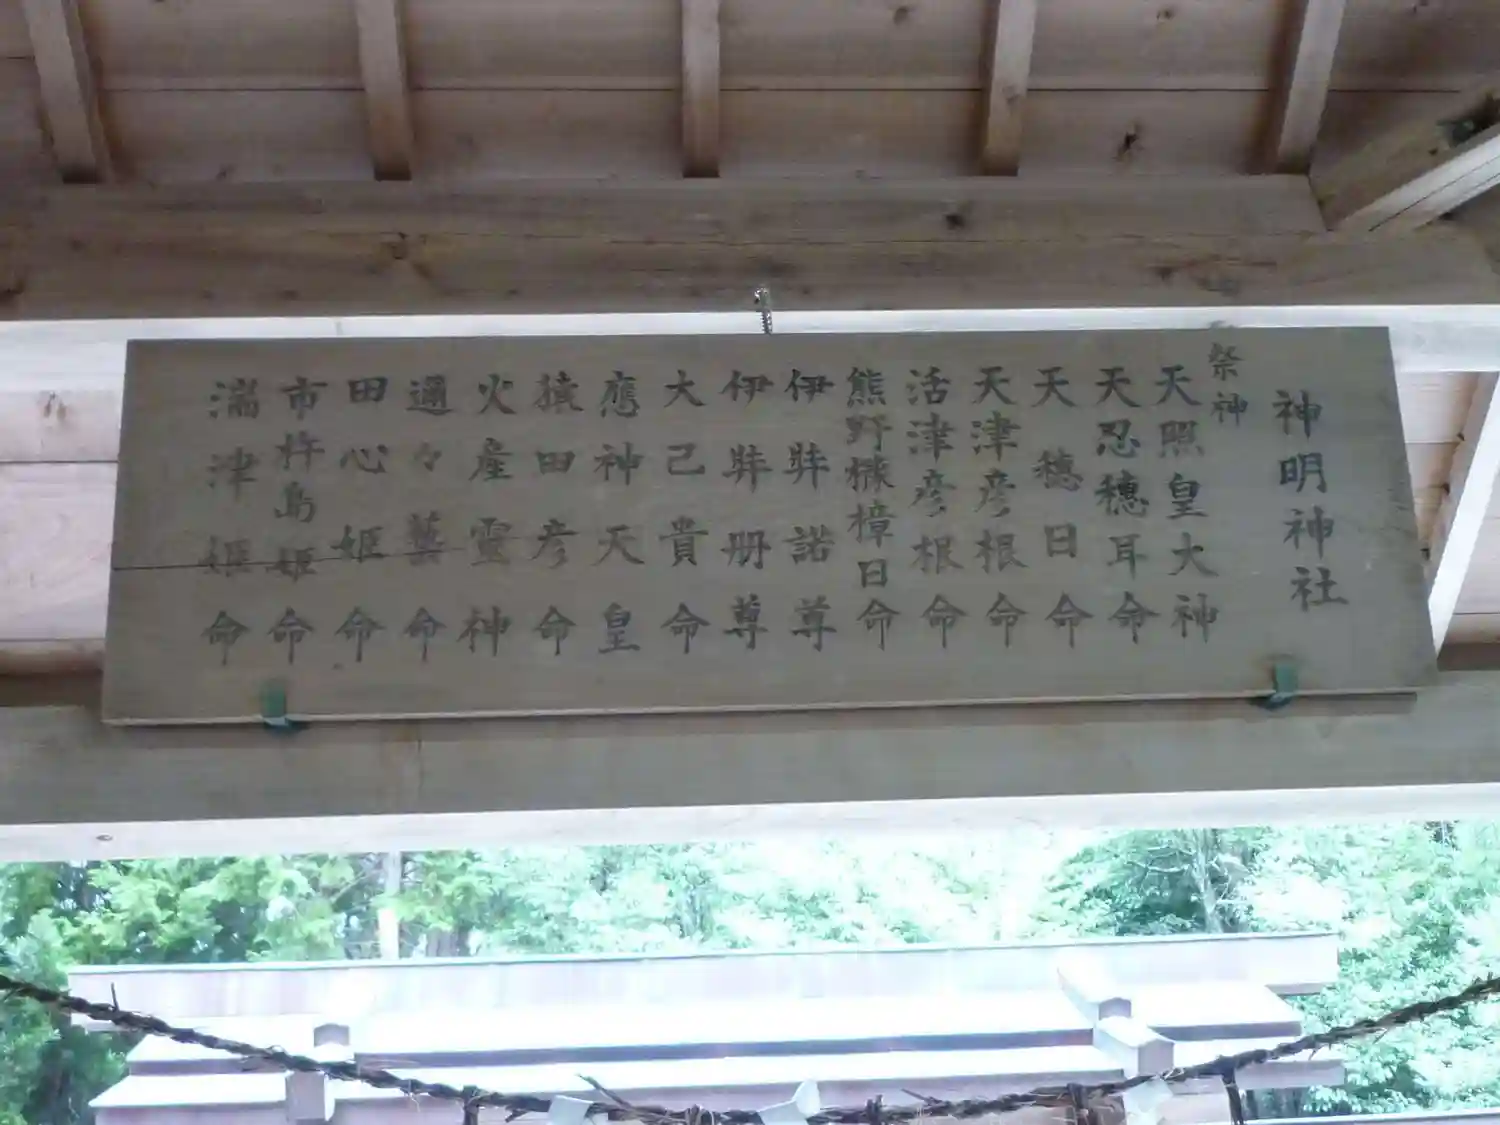 神明神社
祭神
天照皇大神
天忍穂耳命
天穂日命
天津彦根命
活津彦根命
熊野櫲樟日命
伊弉諾尊
伊弉册尊
大己貴命
應神天皇
猿田彦命
火産靈神
邇々藝命
田心姫命
市杵島姫命
湍津姫命